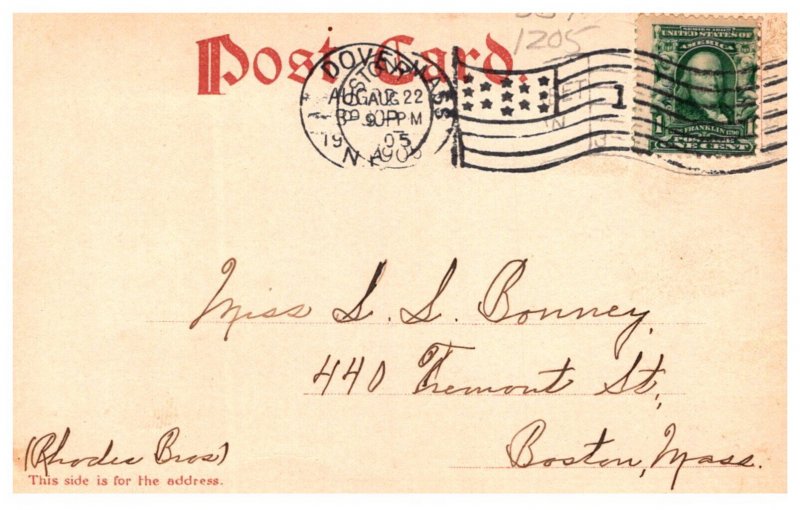 Post Card.
1205
DOVER MASS
BOSTON
AUG 22
9 PM
1905
N A
1
SERIES 1902
UNITED STATES OF AMERICA
FRANKLIN
POSTAGE
ONE CENT
Miss S. S. Bonney,
440 Tremont St.,
Boston, Mass.
(Rhodes Bros)
This side is for the address.